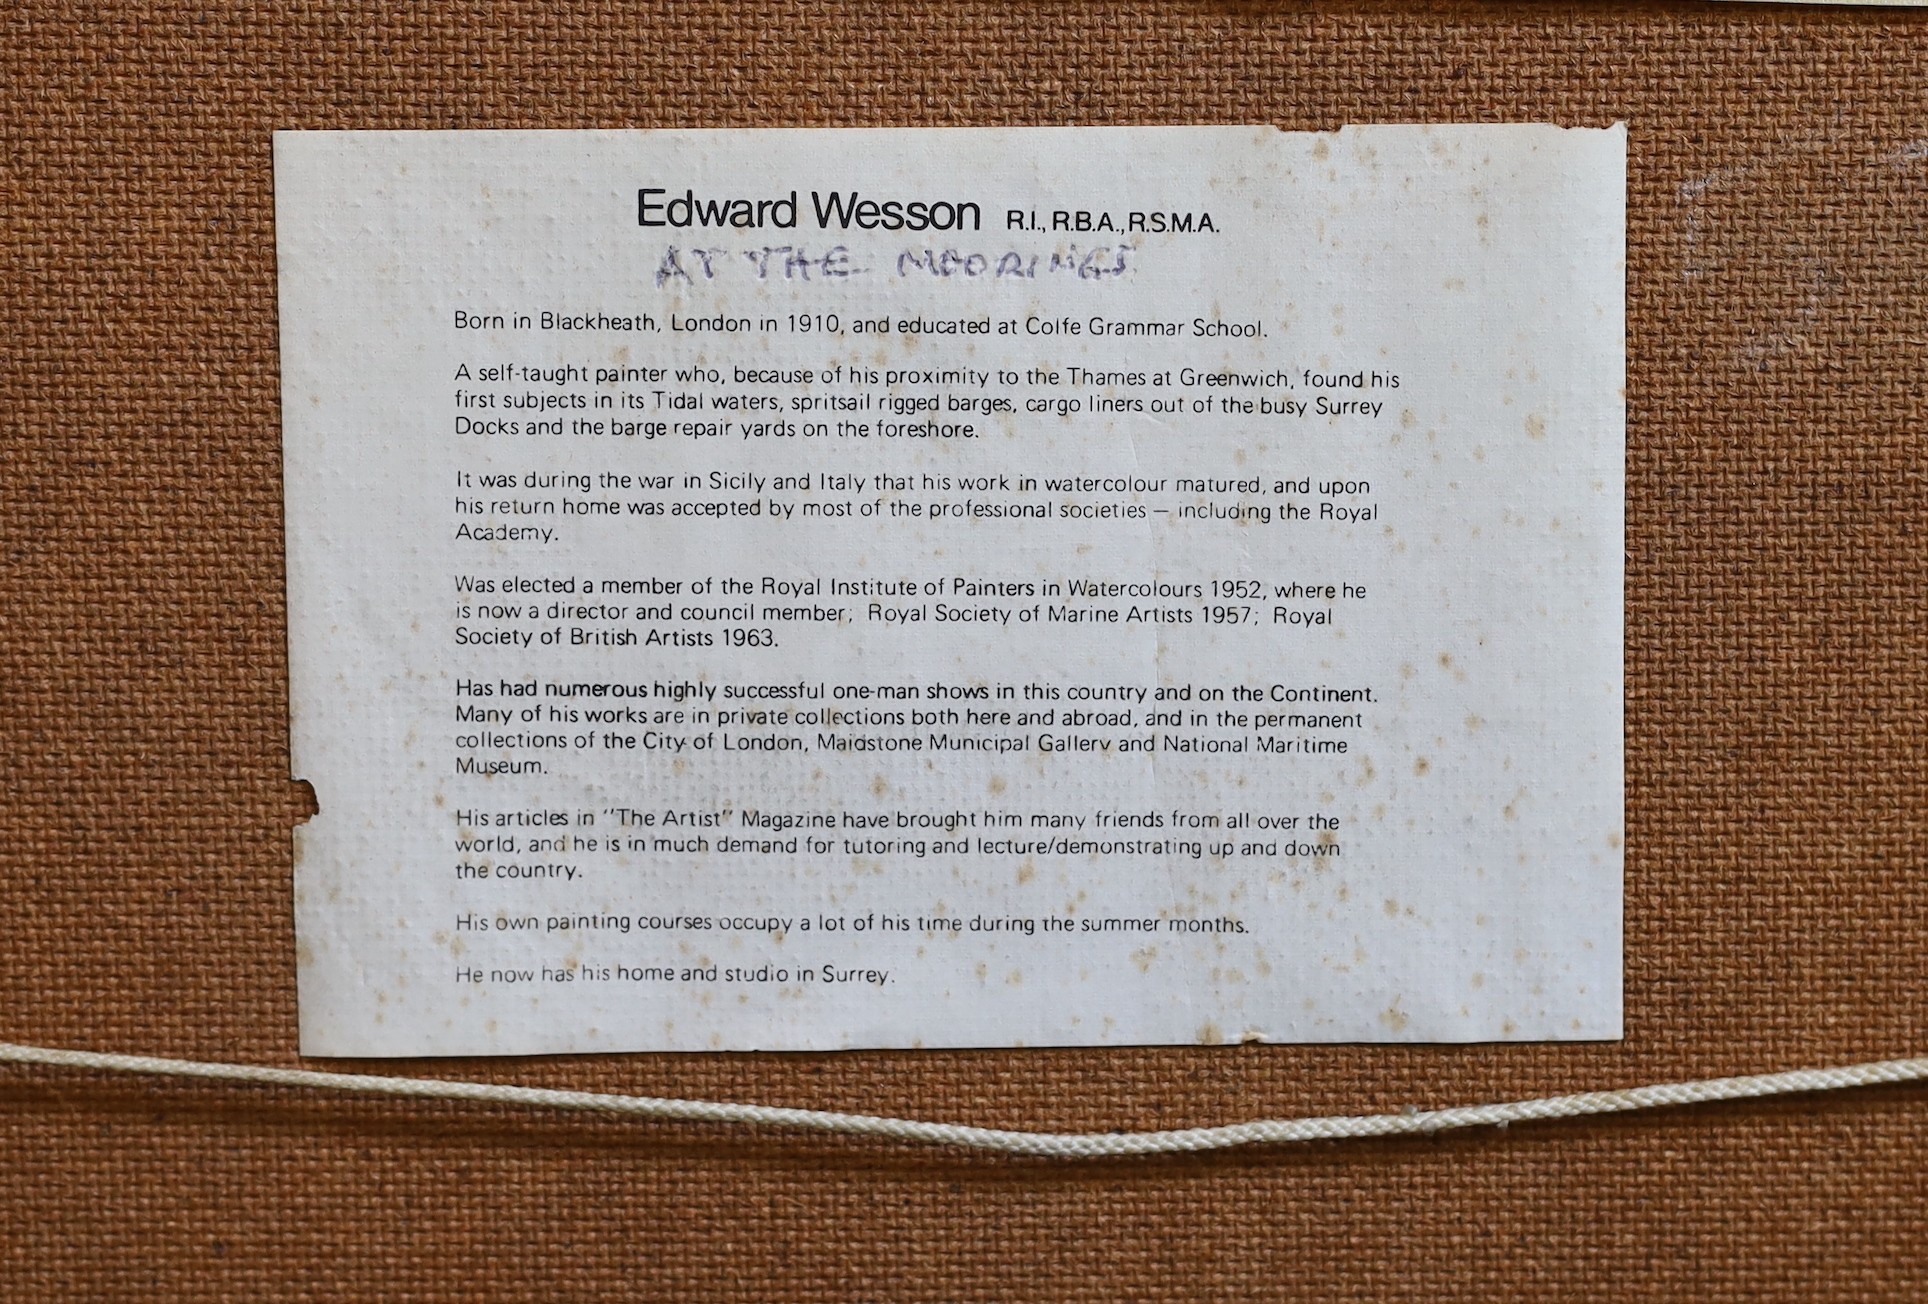 Edward Wesson R.I., R.B.A., R.S.M.A.
AT THE MOORINGS
Born in Blackheath, London in 1910, and educated at Colfe Grammar School.
A self-taught painter who, because of his proximity to the Thames at Greenwich, found his
first subjects in its Tidal waters, spritsail rigged barges, cargo liners out of the busy Surrey
Docks and the barge repair yards on the foreshore.
It was during the war in Sicily and Italy that his work in watercolour matured, and upon
his return home was accepted by most of the professional societies — including the Royal
Academy.
Was elected a member of the Royal Institute of Painters in Watercolours 1952, where he
is now a director and council member; Royal Society of Marine Artists 1957; Royal
Society of British Artists 1963.
Has had numerous highly successful one-man shows in this country and on the Continent.
Many of his works are in private collections both here and abroad, and in the permanent
collections of the City of London, Maidstone Municipal Gallery and National Maritime
Museum.
His articles in "The Artist" Magazine have brought him many friends from all over the
world, and he is in much demand for tutoring and lecture/demonstrating up and down
the country.
His own painting courses occupy a lot of his time during the summer months.
He now has his home and studio in Surrey.